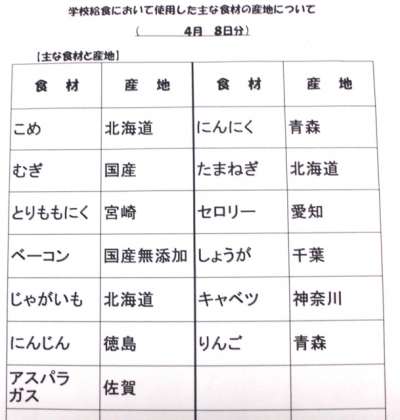 学校給食において使用した主な食材の産地について
( 4月 8日分)
【主な食材と産地】
食 材 産 地 食 材 産 地
こめ 北海道 にんにく 青森
むぎ 国産 たまねぎ 北海道
とりももにく 宮崎 セロリー 愛知
ベーコン 国産無添加 しょうが 千葉
じゃがいも 北海道 キャベツ 神奈川
にんじん 徳島 りんご 青森
アスパラ
ガス 佐賀